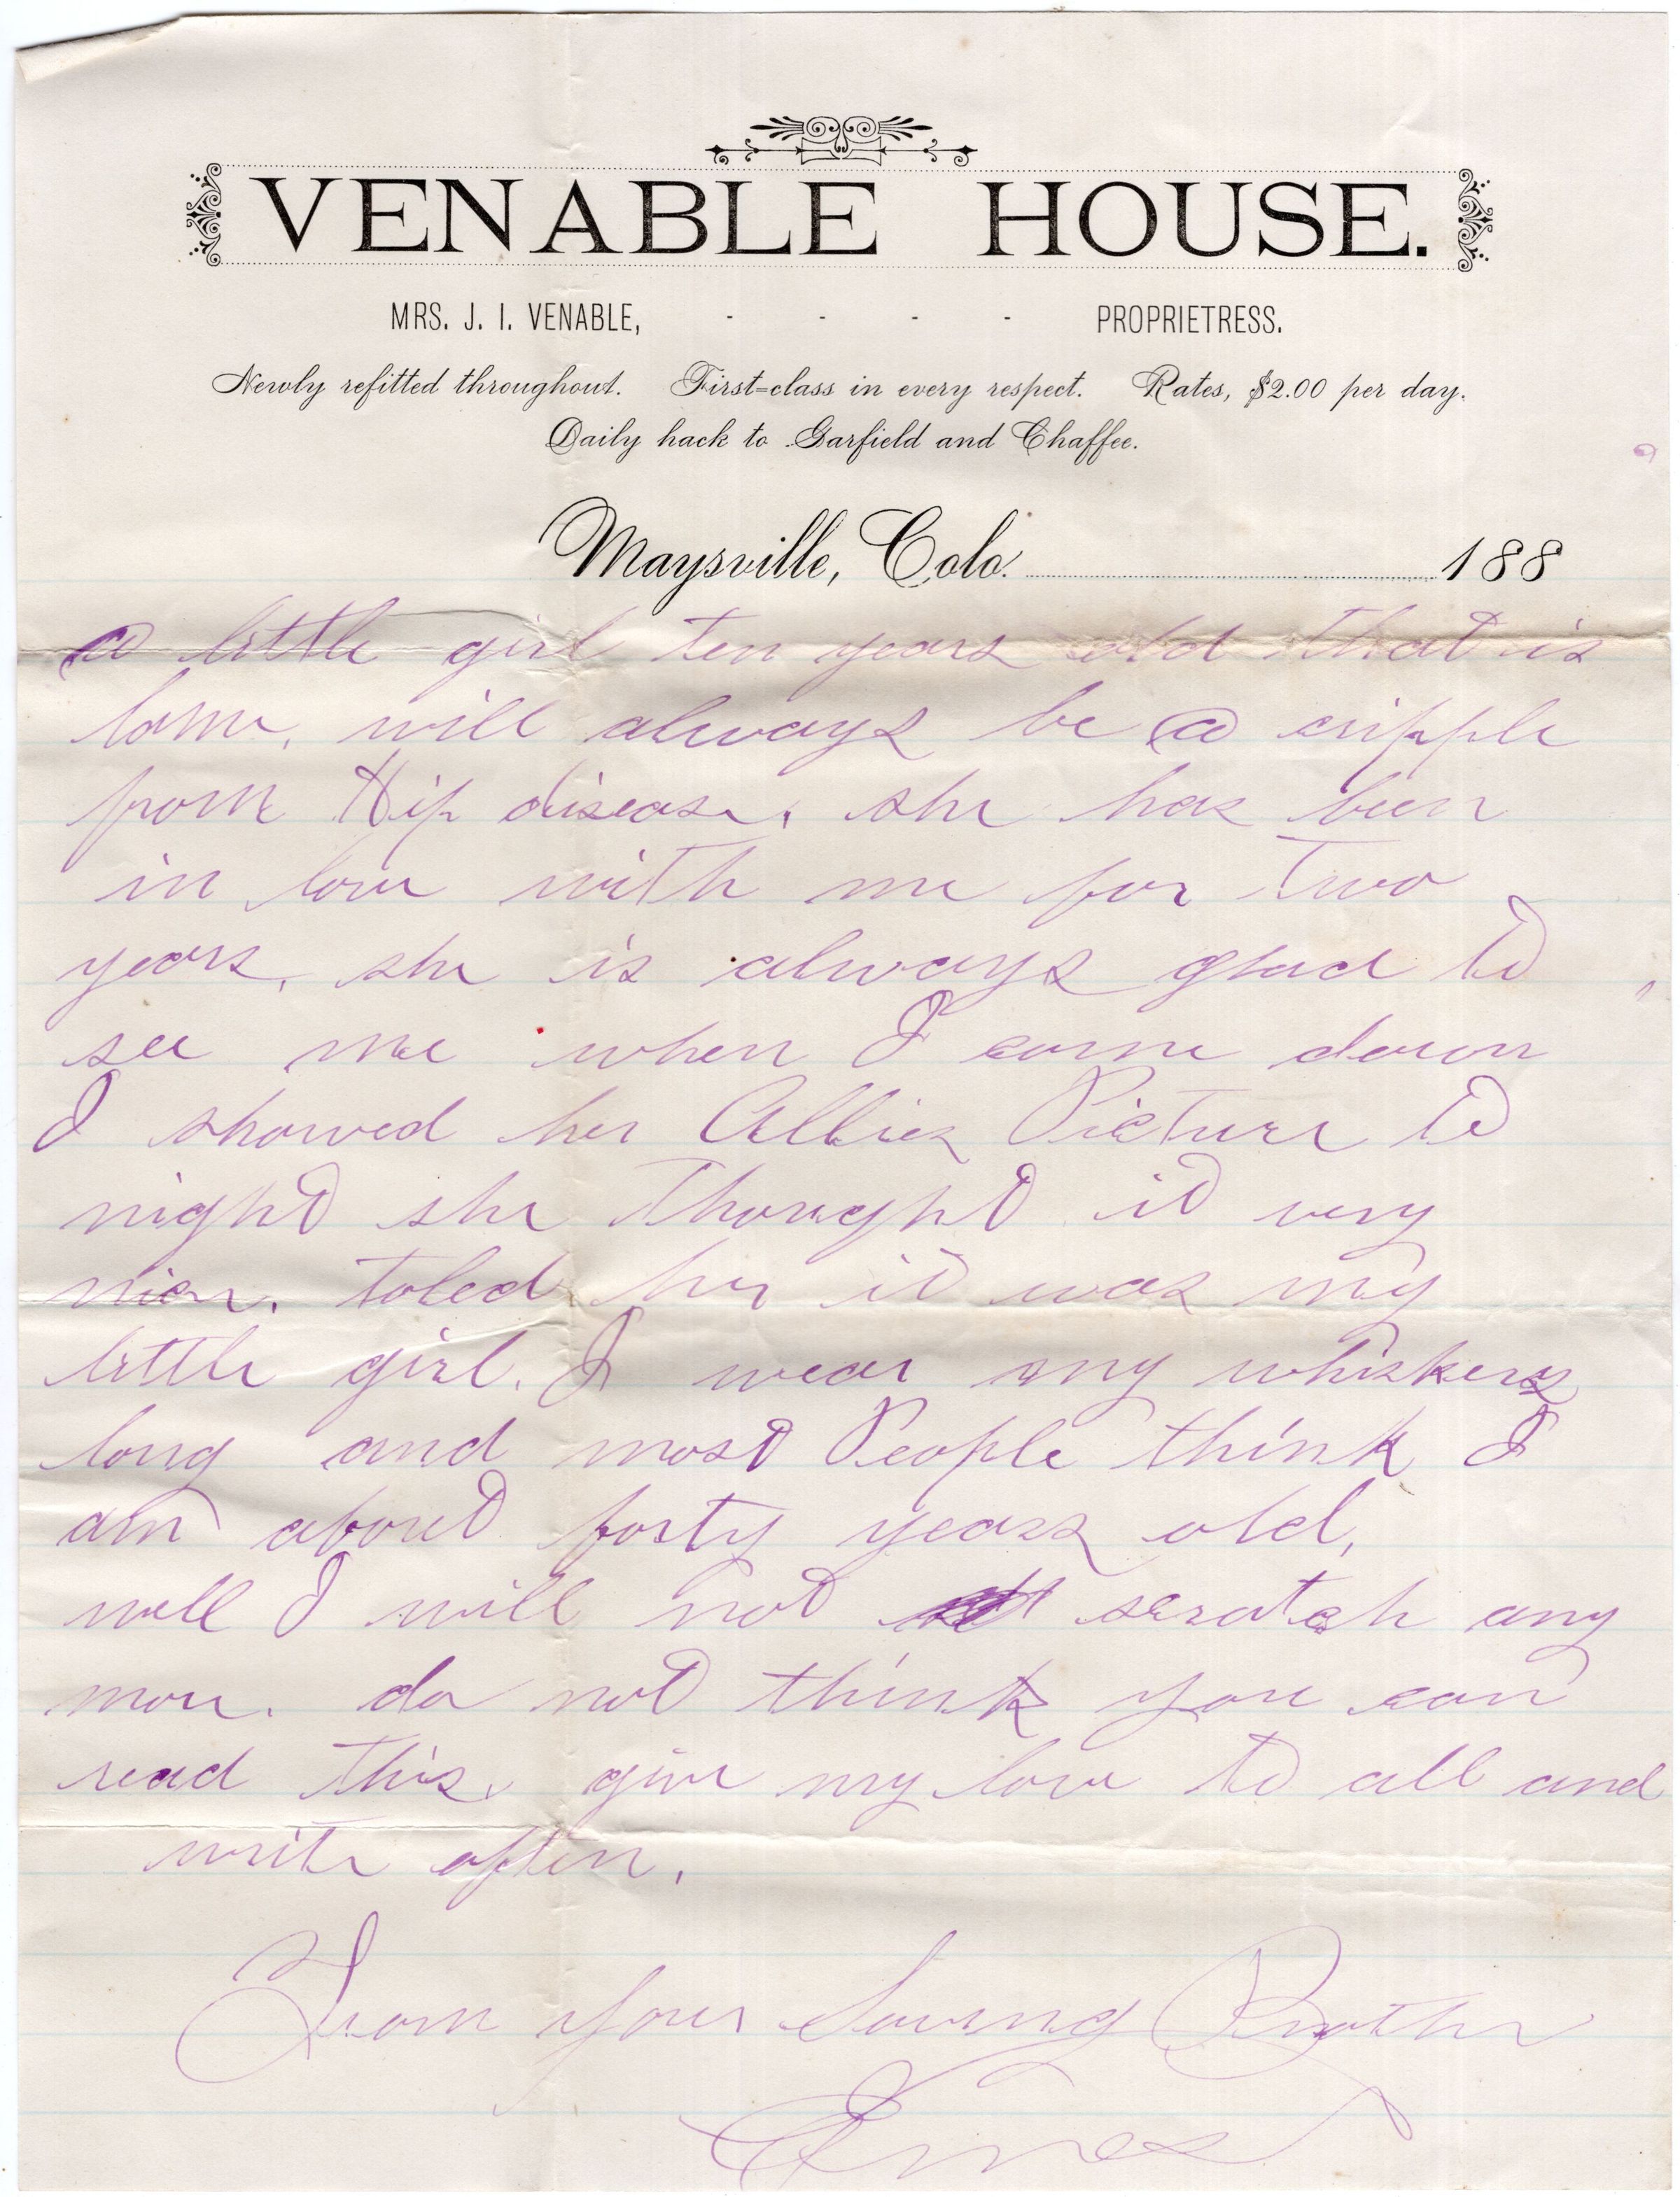 VENABLE HOUSE.
MRS. J. I. VENABLE, - - - - PROPRIETRESS.
Newly refitted throughout. First-class in every respect. Rates, $2.00 per day.
Daily hack to Garfield and Chaffee.
Maysville, Colo. 188
a little girl ten years old that is
lame, will always be a cripple
from Hip disease, she has been
in love with me for two
years, she is always glad to
see me when I come down
I showed her Allies Picture to
night she thought it very
nice. toled her it was my
little girl. I wear my whiskers
long and most People think I
am about forty years old,
well I will not scratch any
more. do not think you can
read this. give my love to all and
write often.
From your Loving Brother